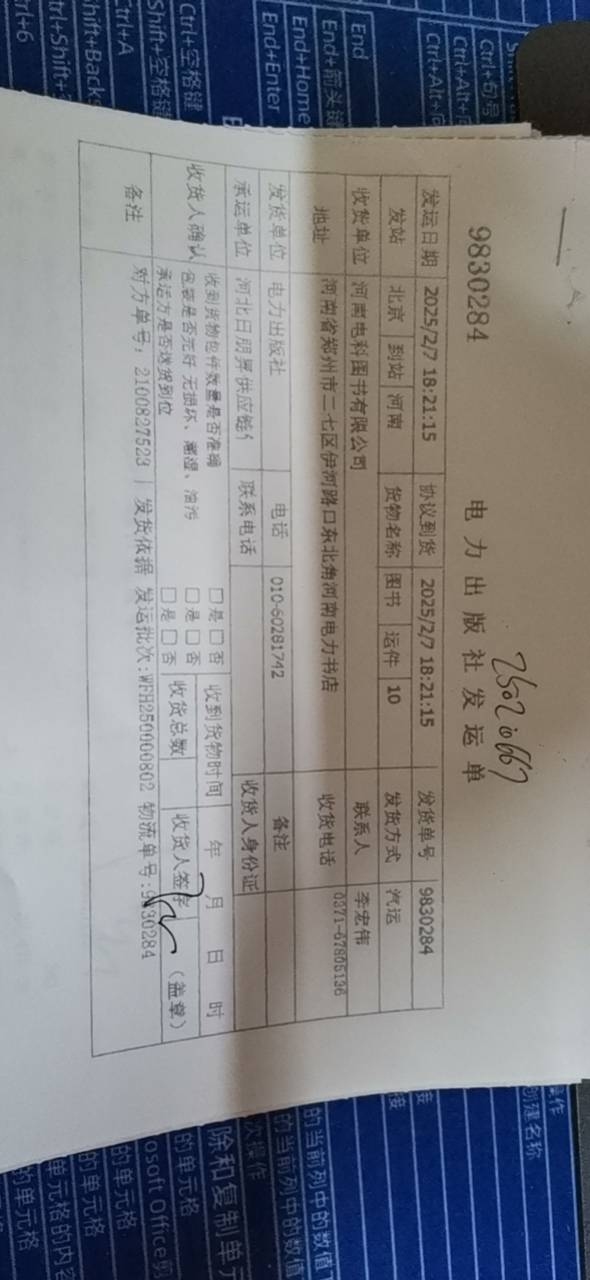 9830284
电力出版社发运单
发运日期 2025/2/7 18:21:15 协议到货 2025/2/7 18:21:15 发货单号 9830284
发站 北京 到站 河南 货物名称 图书 运件 10 发货方式 汽运
收货单位 河南电科图书有限公司 联系人 李宏伟
地址 河南省郑州市二七区伊河路口东北角河南电力书店 收货电话 0371-67805136
发货单位 电力出版社 电话 010-60281742 备注
承运单位 河北日朋昇供应链 联系电话 收货人身份证
收货人确认 收到货物包件数量是否准确 □是 □否 收到货物时间 年 月 日 时
包装是否完好 无损坏、潮湿、油污 □是 □否 收货总数 收货人签字 (盖章)
承运方是否送货到位 □是 □否
备注 对方单号: 2100827523 | 发货依据 发运批次:WFH250000802 物流单号:9830284
Ctrl+句号
Ctrl+Alt+
Ctrl+Alt+
End
End+箭头键
End+Home
End+Enter
Ctrl+空格键
Shift+空格键
Ctrl+A
Shift+Backs
Ctrl+Shift+
trl+6
操作
创建名称
接
接
的当前列中的数值
的当前列中的数值
次操作
除和复制单元
的单元格
osoft Office剪
的单元格
的单元格
单元格的内容
的单元格